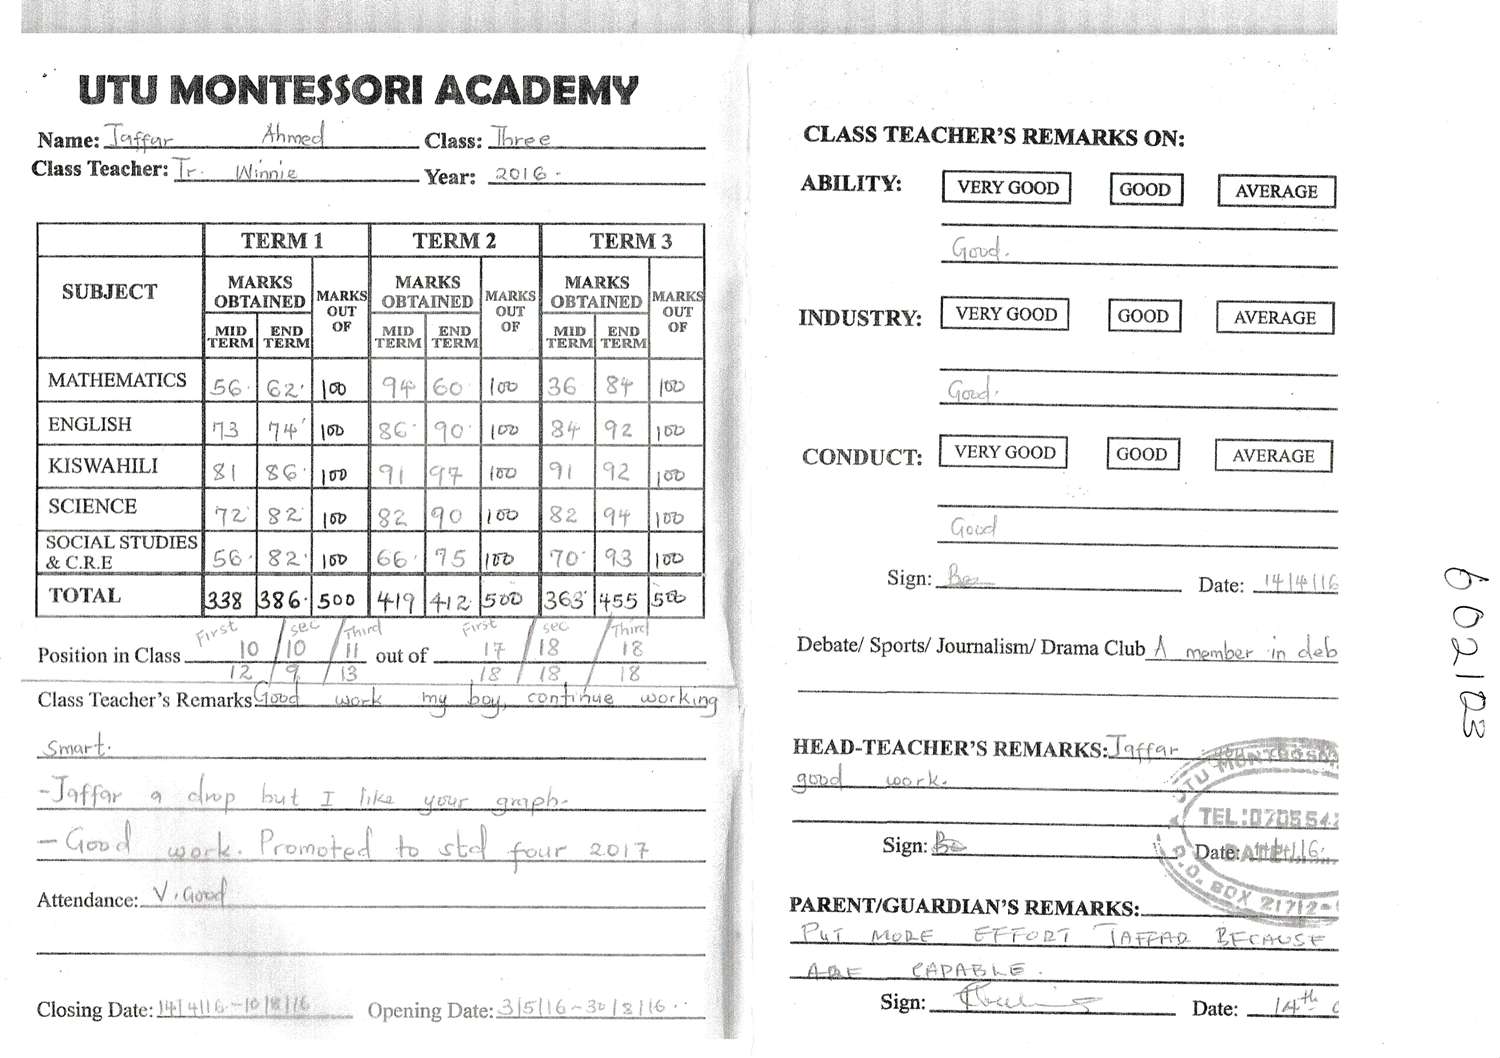 UTU MONTESSORI ACADEMY
Name: Jaffar Ahmed Class: Three
Class Teacher: Tr. Winnie Year: 2016.
TERM 1 TERM 2 TERM 3
SUBJECT MARKS OBTAINED MARKS OUT OF MARKS OBTAINED MARKS OUT OF MARKS OBTAINED MARKS OUT OF
MID TERM END TERM MID TERM END TERM MID TERM END TERM
MATHEMATICS 56 62 100 94 60 100 36 84 100
ENGLISH 73 74 100 86 90 100 84 92 100
KISWAHILI 81 86 100 91 97 100 91 92 100
SCIENCE 72 82 100 82 90 100 82 94 100
SOCIAL STUDIES & C.R.E 56 82 100 66 75 100 70 93 100
TOTAL 338 386 500 419 412 500 363 455 500
First sec Third First sec Third
Position in Class 10 / 10 / 11 out of 17 / 18 / 18
12 / 9 / 13 18 / 18 / 18
Class Teacher's Remarks Good work my boy, continue working
smart.
- Jaffar a drop but I like your graph.
- Good work. Promoted to std four 2017
Attendance: V. Good
Closing Date: 14/4/16 - 10/8/16 Opening Date: 3/5/16 - 30/8/16
CLASS TEACHER'S REMARKS ON:
ABILITY: VERY GOOD GOOD AVERAGE
Good.
INDUSTRY: VERY GOOD GOOD AVERAGE
Good.
CONDUCT: VERY GOOD GOOD AVERAGE
Good
Sign: Date: 14/4/16
Debate/ Sports/ Journalism/ Drama Club A member in deb
HEAD-TEACHER'S REMARKS: Jaffar
good work.
UTU MONTESSORI
TEL:0705542
Sign: Date:
DATE
P.O. BOX 21712-
PARENT/GUARDIAN'S REMARKS:
PUT MORE EFFORT JAFFAR BECAUSE
ARE CAPABLE.
Sign: Date: 14th
602103